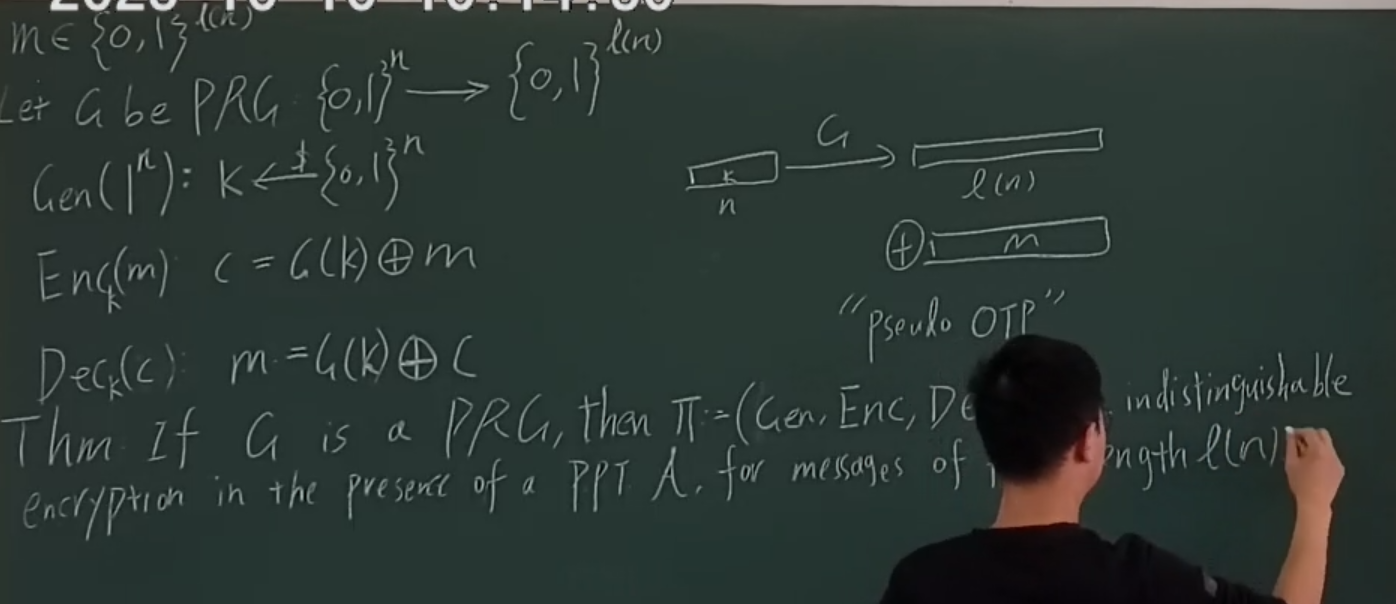 m ∈ {0,1}^{l(n)}
Let G be PRG: {0,1}^n → {0,1}^{l(n)}
Gen(1^n): k ←$ {0,1}^n
Enc_k(m): c = G(k) ⊕ m
Dec_k(c): m = G(k) ⊕ c
G
k
n
l(n)
⊕ m
"pseudo OTP"
Thm. If G is a PRG, then Π := (Gen, Enc, indistinguishable
encryption in the presence of a PPT A, for messages of l(n)